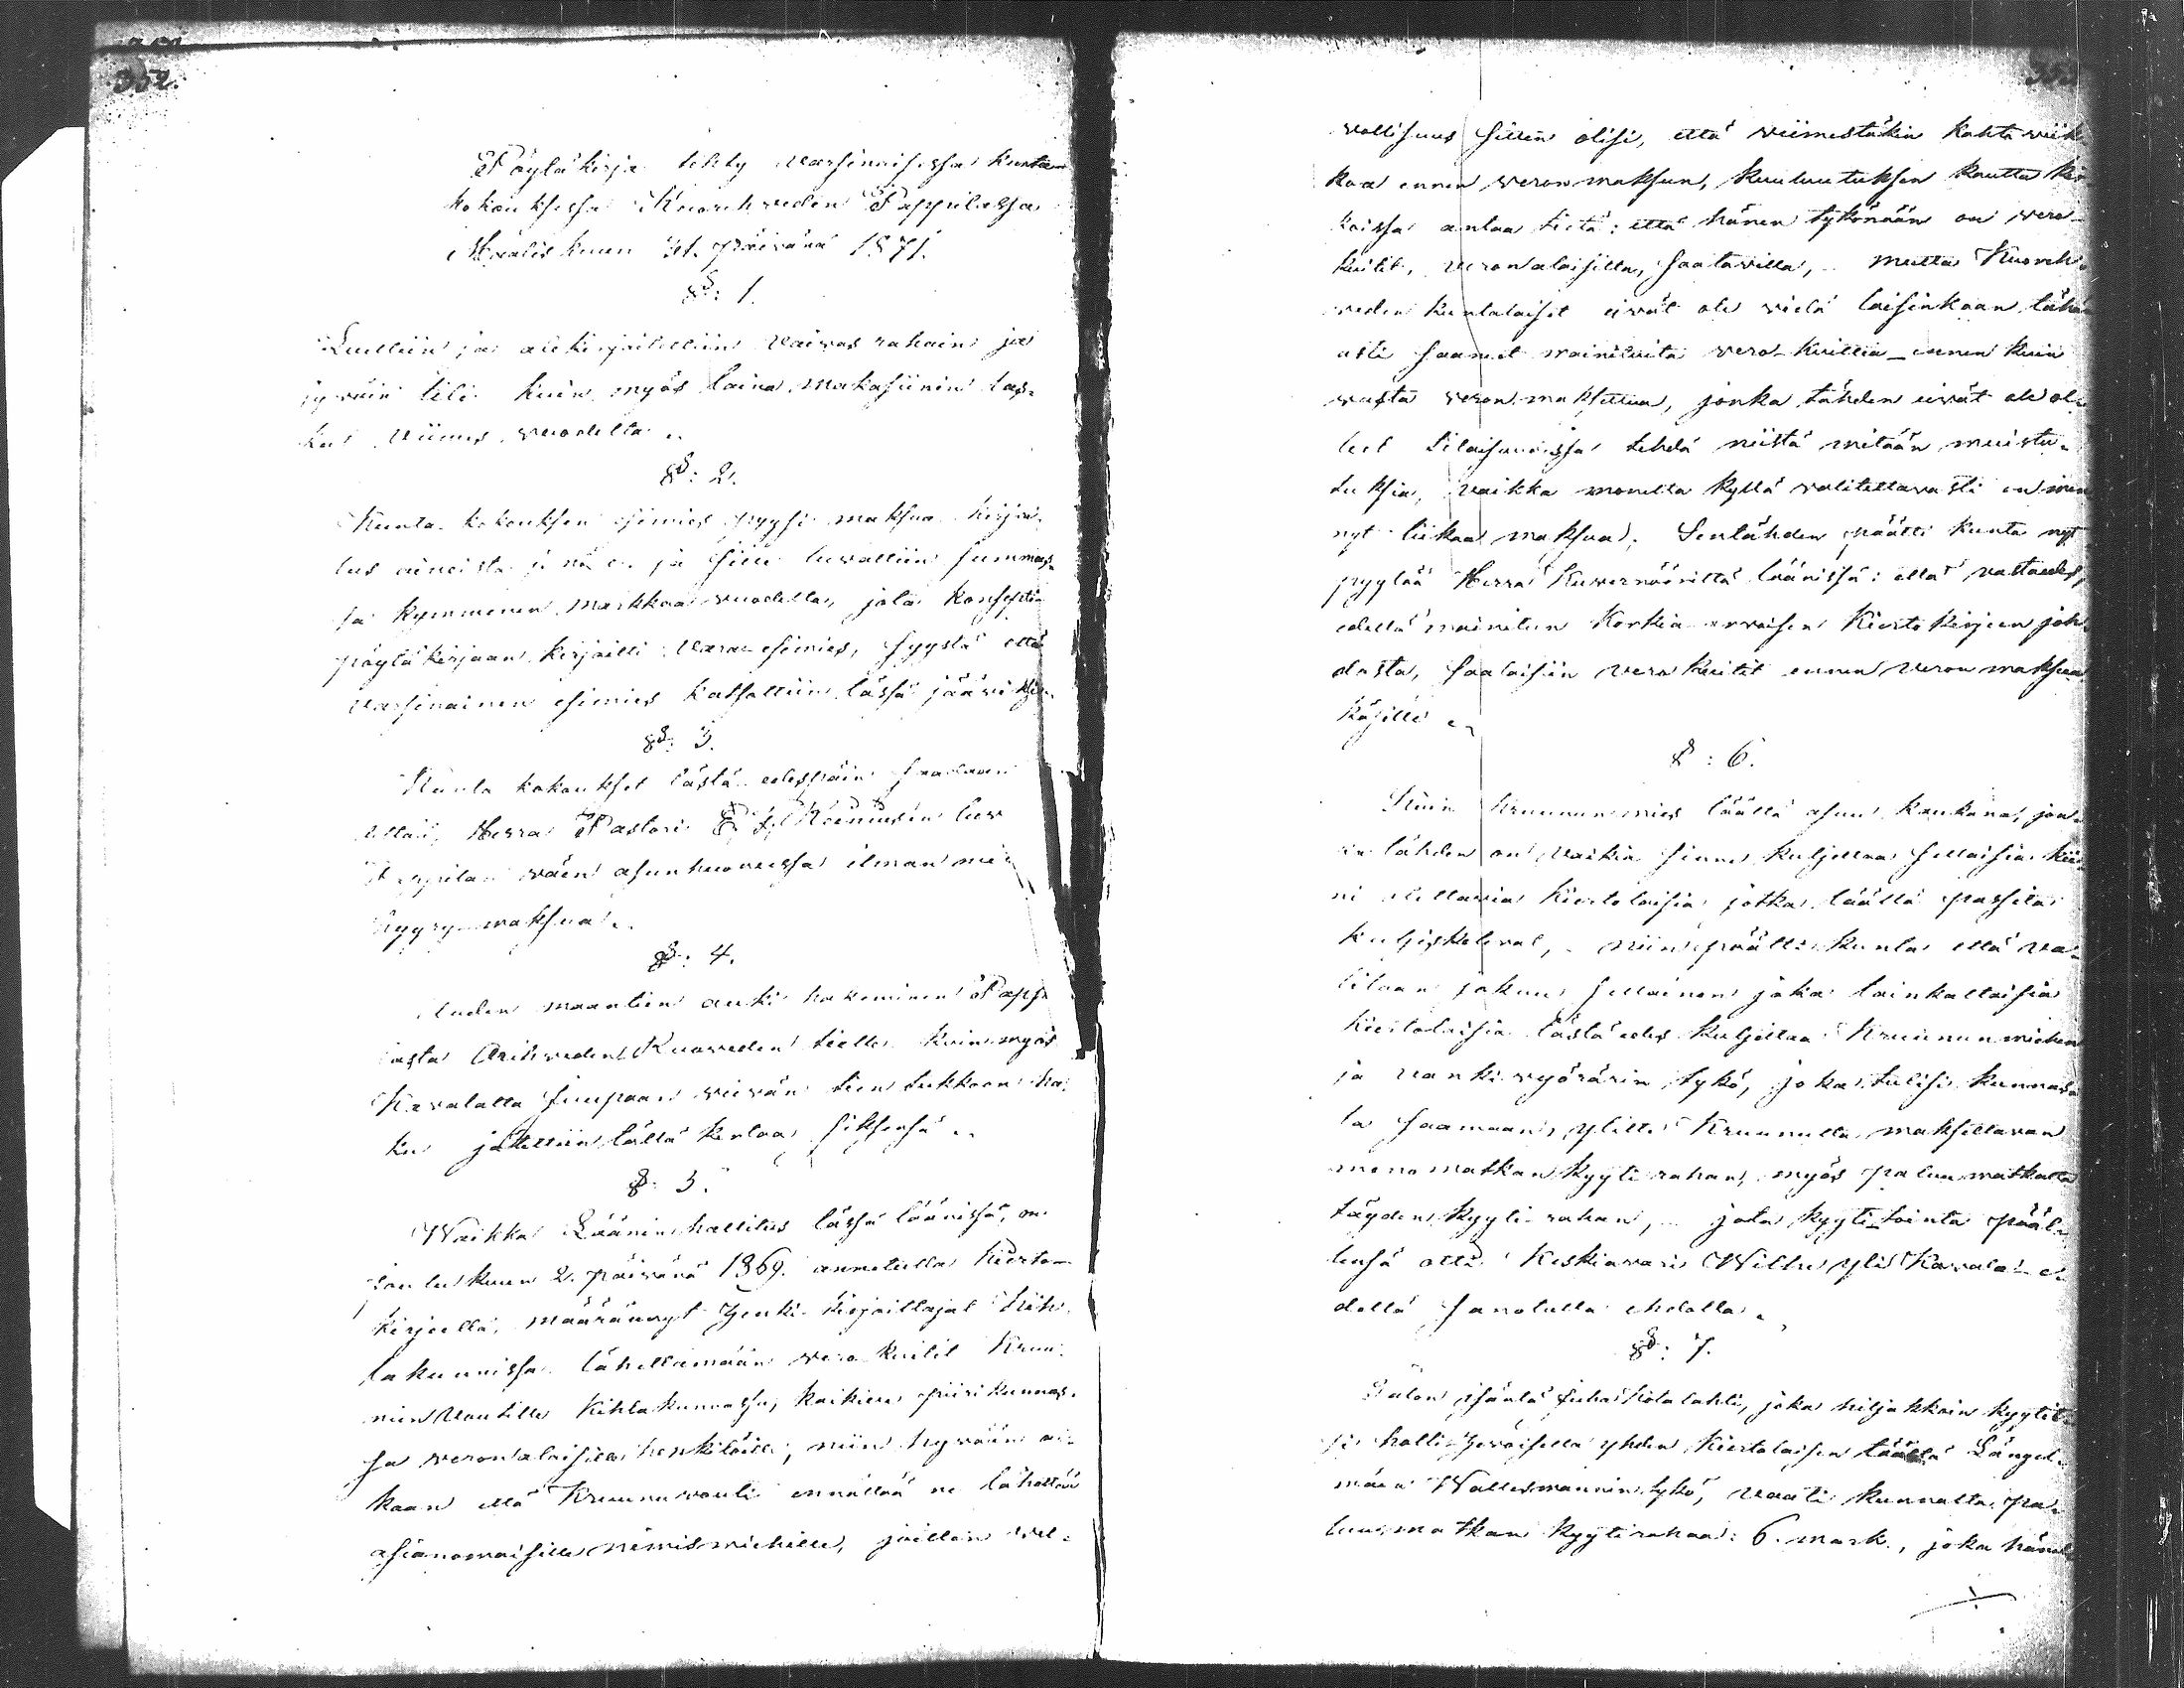 352.
Pöytäkirja tehty varsinaisessa kunta-
kokouksessa Kuorehveden Pappilassa
Maaliskuun 31. päivänä 1871.
§: 1.
Luettiin ja allekirjoitettiin Vaivas rahain ja
jyväin tili kuin myös laina makasiinin las-
ku viimes vuodelta.
§: 2.
Kunta kokouksen esimies pyysi maksua kirjoi-
tus aineista ja sille luvattiin summas-
sa kymmenen markkaa vuodelta, jota
pöytäkirjaan kirjoitti Vara-esimies, syystä että
varsinainen esimies katsottiin tässä jääviksi.
§: 3.
Kunta kokoukset tästä edespäin saadaan
Herra Pastori
Pappilan väen asunhuoneissa ilman
hyyry maksua.
§: 4.
uuden maantien auki hakeminen
Orihveden Kuoreveden tielle kuin myös
Kavalalta vievän tien tukkoon ha-
ku jätettiin tällä kertaa siksensä.
§: 5.
Waikka Läänin hallitus tässä läänissä, on
Joulukuun 2. päivänä 1869. annetulla Kierto-
kirjeellä, määrännyt Henki kirjoittajat Kih-
lakunnissa lähettämään vero kuitit Kruu-
nun Voutille Kihlakunnassa, kaikille piirikunnas-
sa veronalaisille henkilöille, niin hyvään ai-
kaan että Kruunuvouti ennättää ne lähettää
asianomaisille nimismiehille, joitten vel-
vollisuus sitten olisi, että viimestäkin kahta viik-
koa ennen veron maksun, kuuluutuksen kautta kir-
koissa antaa tietä: että hänen tykönään on vero-
kuitit, veronalaisilla, saatavilla, mutta Kuoreh-
veden kuntalaiset eivät ole vielä laisinkaan tähän
asti saaneet mainituita vero-kuittia ennen kuin
vasta veron maksettua, jonka tähden eivät ole ol-
leet tilaisuudessa tehdä niistä mitään muistu-
tuksia, vaikka monella kyllä valitettavasti on men-
nyt liikaa maksua. Sentähden päätti kunta nyt
pyytää Herra Kuvernööriltä läänissä: että vastaedes,
edellä mainitun Korkia-arvoisen Kiertokirjeen joh-
dosta, saataisiin vero kuitit ennen veron maksua
käsille.
§: 6.
Kuin Kruununmies täällä asuu kaukana, jon-
ka tähden on vaikia sinne kuljettaa sellaisia kii-
ni otettavia kiertolaisia jotka täällä passita
kuljeskelevat, niin päätti kunta että va-
litaan joku sellainen joka lainkaltaisia
kiertolaisia tästä edes kuljettaa Kruununmiehen
ja vanki vyörärin tykö, joka tulisi kunnas-
ta saamaan, ylitte Kruunulta maksettavan
meno matkan kyyti rahan, myös paluu matkalta
täyden kyyti-rahan, jota kyyti tointa pääl-
lensä otti Keskiavari Wilho Yli Kavala e-
dellä sanotulla ehdolla.
§: 7.
Talon isäntä Juha Kotalahti, joka hiljakkoin kyytit-
si holli hevoisella yhden Kiertolaisen täältä Längel-
mäen Wallesmannin tykö, vaati kunnalta pa-
luu matkan kyytirahaa: 6. mark., joka hänelle